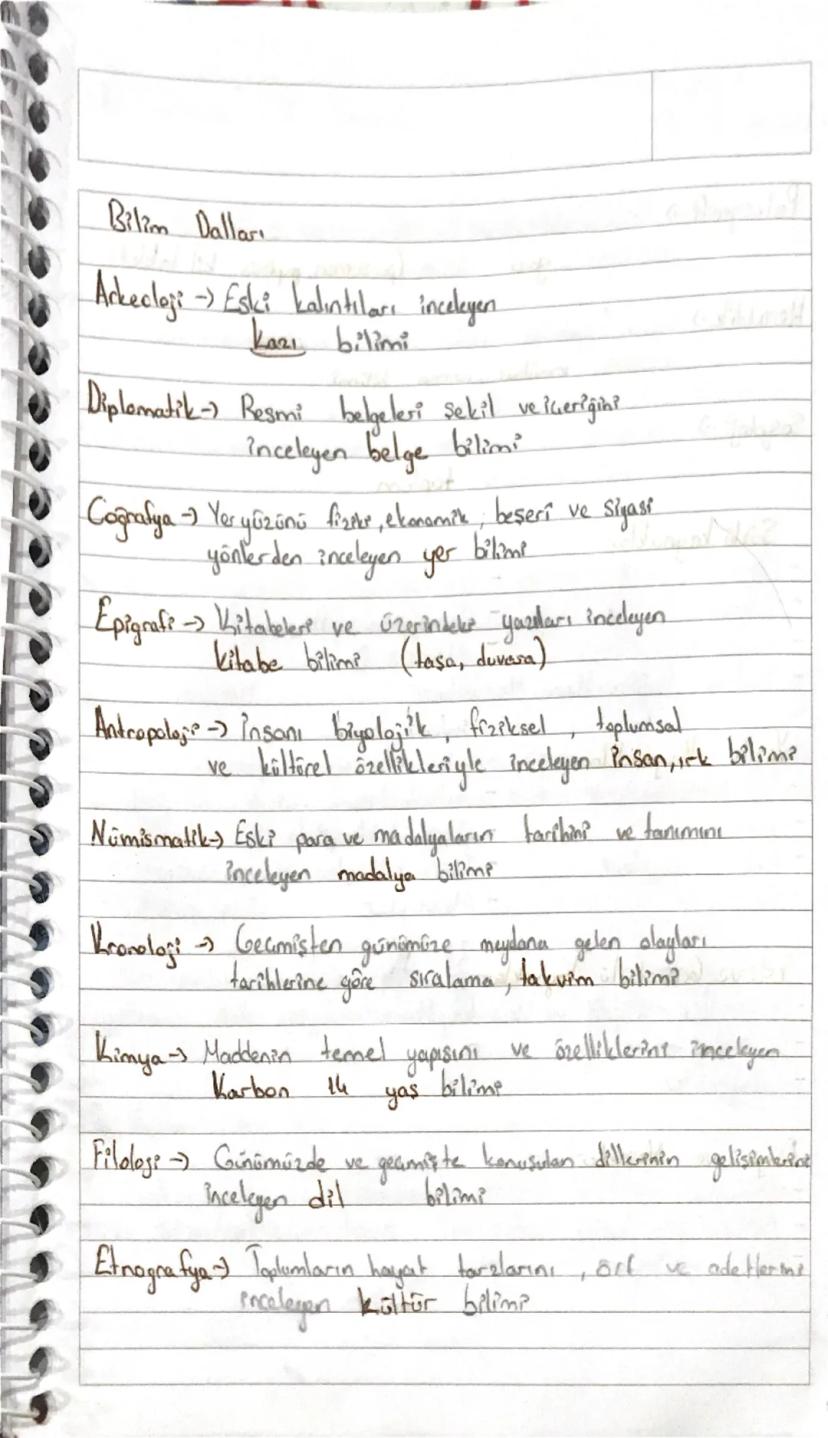 Bilim Dalları
Arkeoloji → Eski kalıntıları inceleyen
kazı bilimi
Diplomatik → Resmi belgeleri şekil ve içeriğini
inceleyen belge bilimi
Coğrafya → Yeryüzünü fiziki, ekonomik, beşeri ve siyasi
yönlerden inceleyen yer bilimi
Epigrafi → Kitabeleri ve üzerindeki yazıları inceleyen
kitabe bilimi (taşa, duvara)
Antropoloji → insanı biyolojik, fiziksel, toplumsal
ve kültürel özellikleriyle inceleyen insan, ırk bilimi
Nümismatik → Eski para ve madalyaların tarihini ve tanımını
inceleyen madalya bilimi
Kronoloji → Geçmişten günümüze meydana gelen olayları
tarihlerine göre sıralama, takvim bilimi
Kimya → Maddenin temel yapısını ve özelliklerini inceleyen
Karbon 14 yaş bilimi
Filoloji → Günümüzde ve geçmişte konuşulan dillerinin gelişimlerini
inceleyen dil bilimi
Etnografya → Toplumların hayat tarzlarını, örf ve adetlerini
inceleyen kültür bilimi